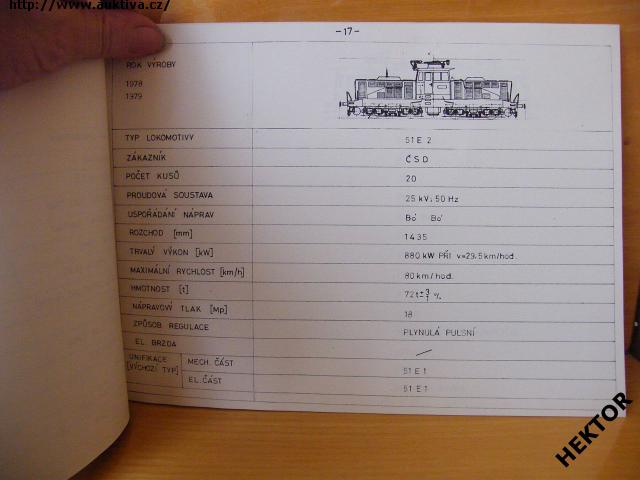 http://www.auktiva.cz/
-17-
ROK VÝROBY
1978
1979
TYP LOKOMOTIVY 51 E 2
ZÁKAZNÍK ČSD
POČET KUSŮ 20
PROUDOVÁ SOUSTAVA 25 kV; 50 Hz
USPOŘÁDÁNÍ NÁPRAV Bó Bó
ROZCHOD [mm] 1435
TRVALÝ VÝKON [kW] 880 kW PŘI v=29.5 km/hod.
MAXIMÁLNÍ RYCHLOST [km/h] 80 km/hod.
HMOTNOST [t] 72 t ± 3/1 %
NÁPRAVOVÝ TLAK [Mp] 18
ZPŮSOB REGULACE PLYNULÁ PULSNÍ
EL. BRZDA —
UNIFIKACE [VÝCHOZÍ TYP] MECH. ČÁST 51 E 1
EL. ČÁST 51 E 1
HEKTOR